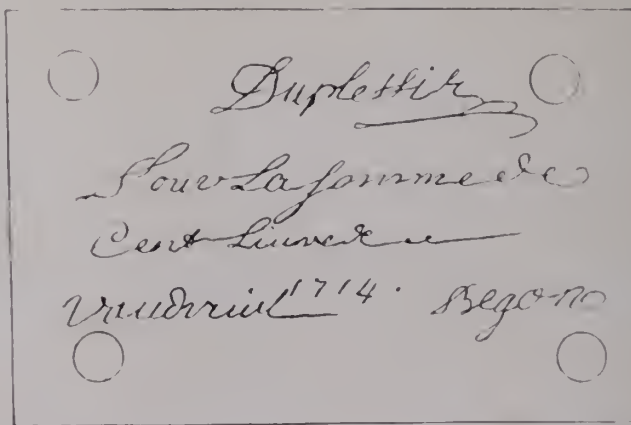 Duplessis
Pour La somme de
Cent Liures
Vaudreuil 1714. Begon